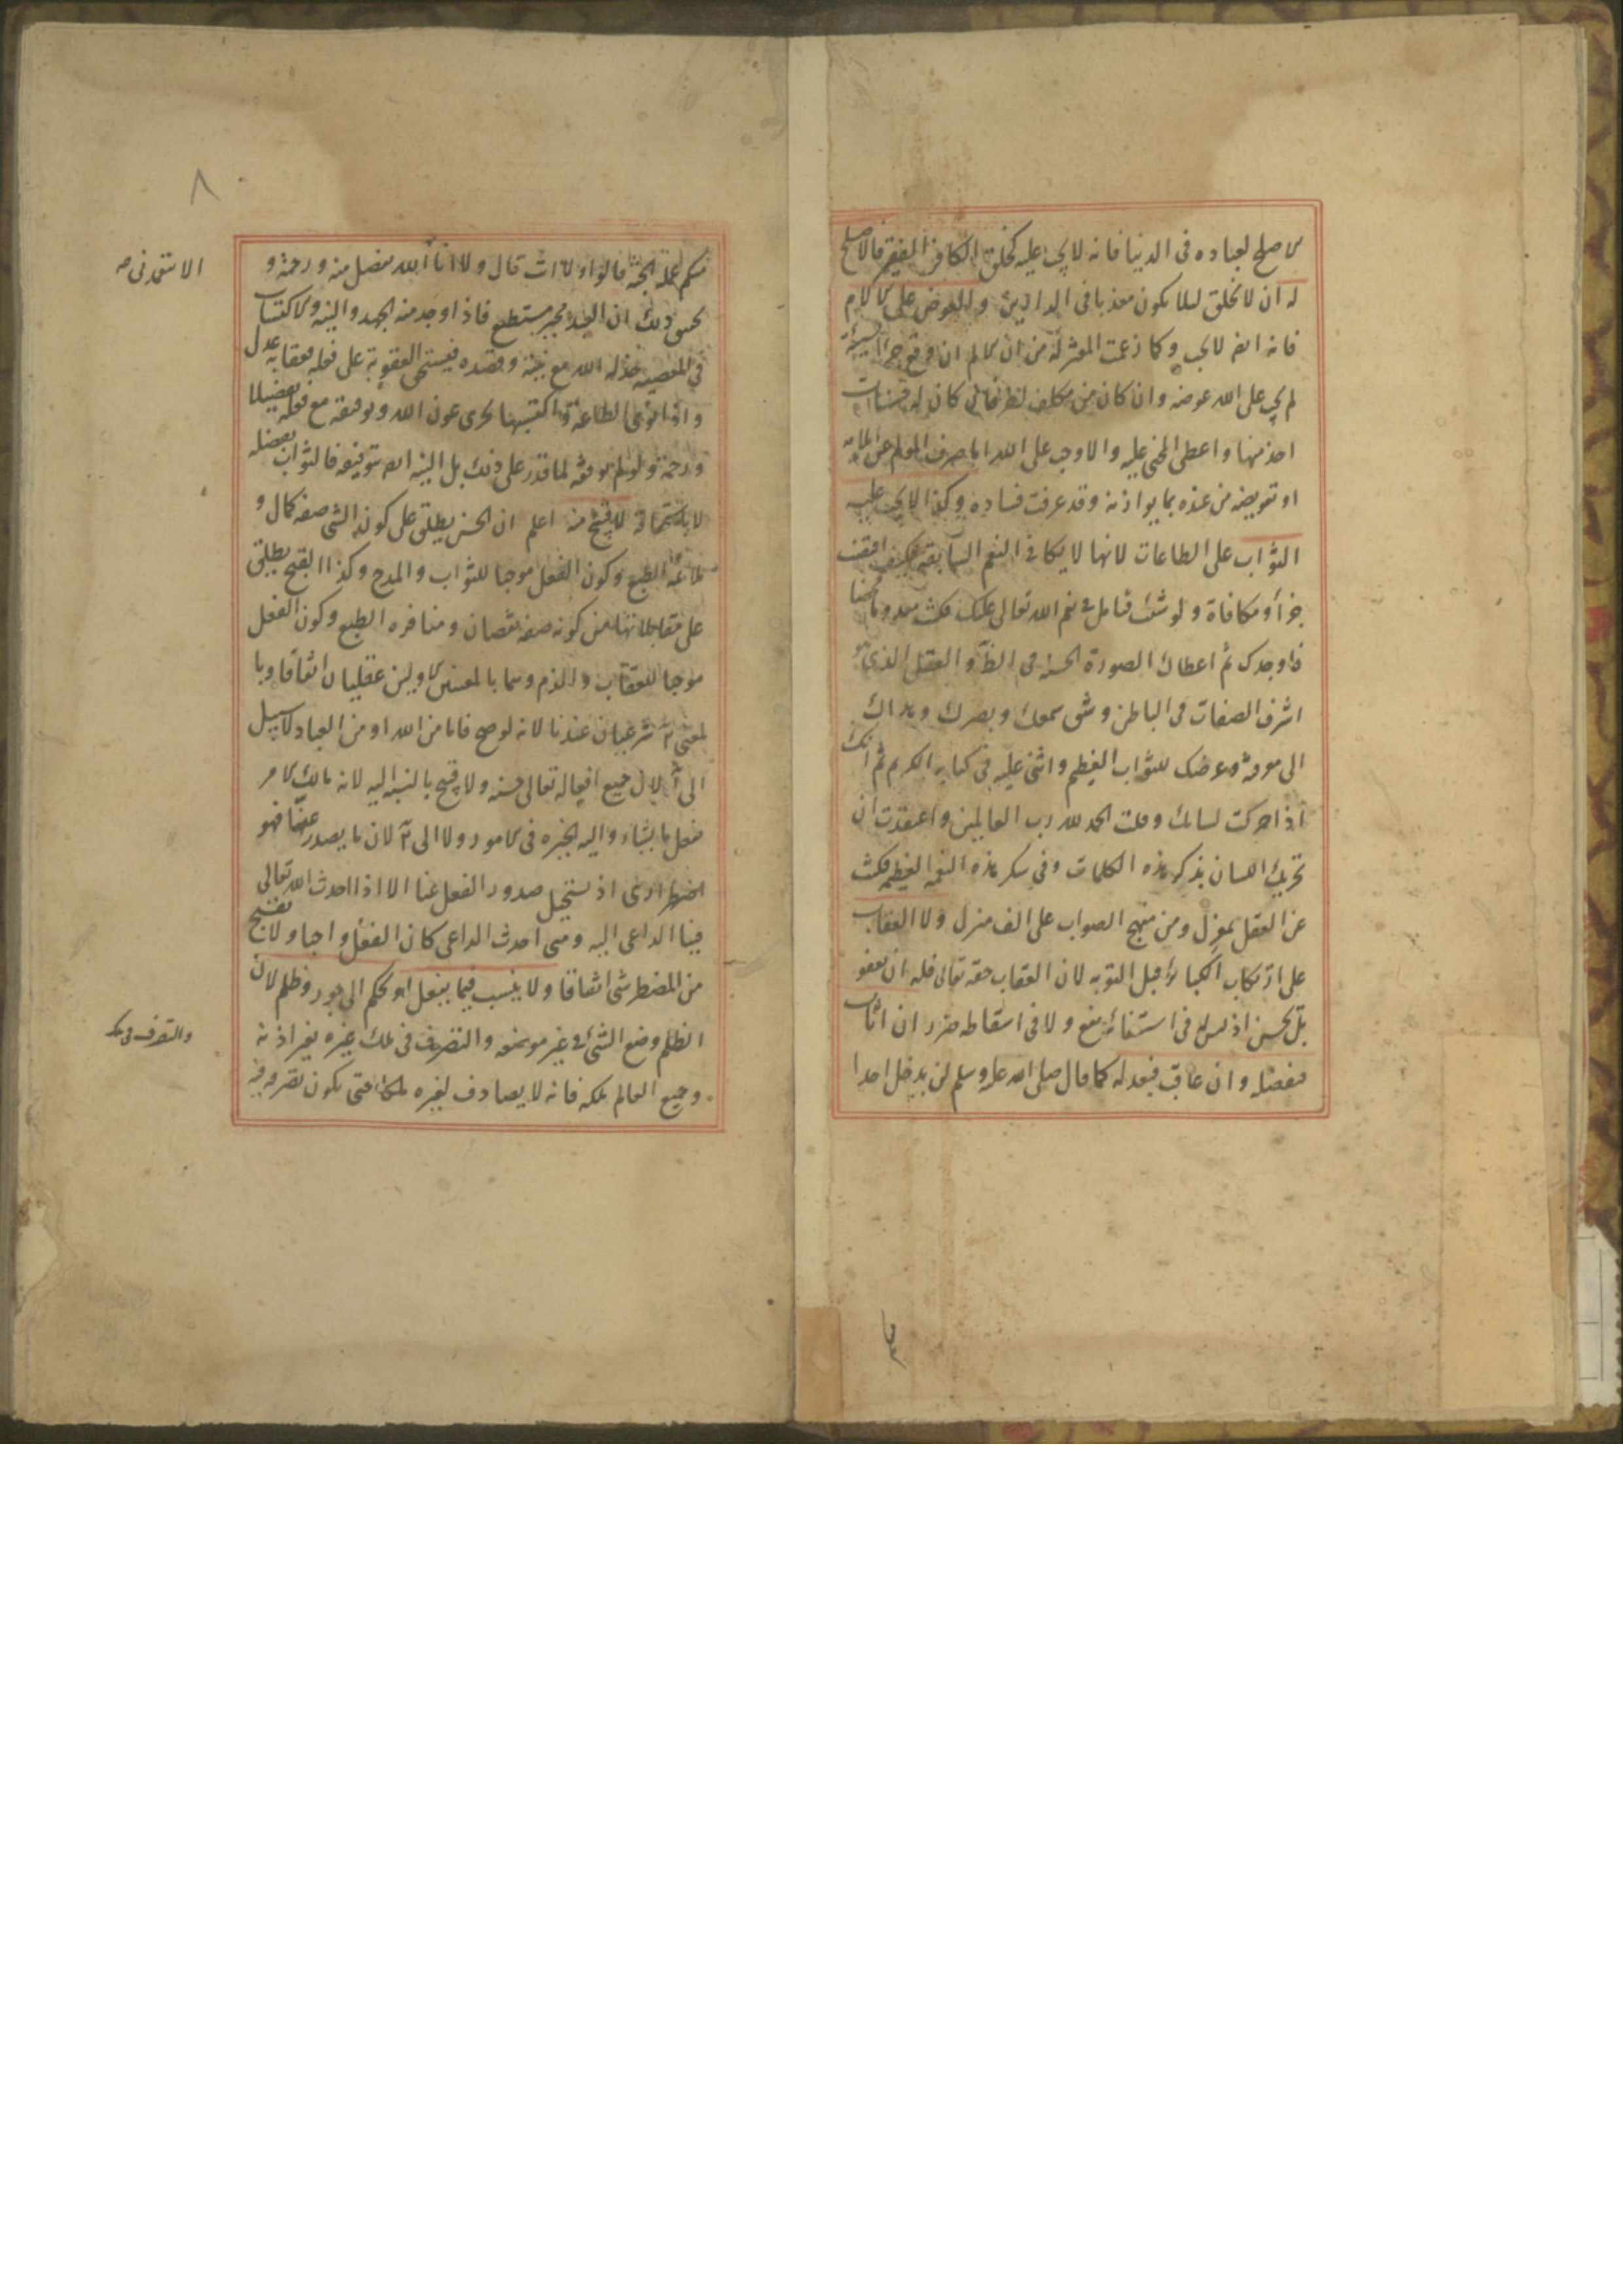 الاصلح لعباده فى الدنيا فانه لا يجب عليه كخلق الكافر الفقير فالاصلح
له ان لا يخلق لئلا يكون معذبا فى الدارين ولا العوض على الآلام
فانه ايضا لا يجب وكما زعمت المعتزلة من ان الالم ان وقع جزآء لسيئة
لم يجب على الله عوضه وان كان من مكلف اخر فان كان له حسنات
اخذ منها واعطى المجنى عليه والا وجب على الله اما صرف المولم عن ايلامه
او تعويضه من عنده بما يوازنه وقد عرفت فساده وكذا لا يجب عليه
الثواب على الطاعات لانها لا يكافى النعم السآبقة فكيف
جزأ ومكافاة ولو شئت فتامل فى نعم الله تعالى عليك كنت معدوما
فاوجدك ثم اعطاك الصورة الحسنة فى الظ والعقل الذى هو
اشرف الصفات فى الباطن وشق سمعك وبصرك وهداك
الى معرفته وعرضك للثواب العظيم واثنى عليه فى كتابه الكريم ثم انك
اذا حركت لسانك وقلت الحمد لله رب العالمين واعتقدت ان
تحريك اللسان بذكر هذه الكلمات وفى شكر هذه النعمة العظيمة كنت
عن العقل بمعزل ومن منهج الصواب على الف منزل ولا العقاب
على ارتكاب الكبائر قبل التوبه لان العقاب حقه تعالى فله ان يعفو
بل يحسن اذ ليس له فى استيفائه نفع ولا فى اسقاطه ضرر ان اثاب
فبفضله وان عاقب فبعدله كما قال صلى الله عليه وسلم لن يدخل احدا
٨
منكم عمله الجنة قالوا ولا انت قال ولا انا الا ان الله بفضل منه ورحمة و
تحقيق ذلك ان العبد مخير مستطيع فاذا وجد منه الجهد والنية والاكتساب
فى المعصية خذله الله مع نيته وقصده فيستحق العقوبة على فعله فعقابه عدل
واذا نوى الطاعة واكتسبها يجرى عون الله وتوفيقه مع فعله تفضيلا
ورحمة ولو لم يوفقه لما قدر على ذلك بل النية ايضا بتوفيقه فالثواب بفضله
لا باستحقاقه لا قبيح منه اعلم ان الحسن يطلق على كون الشئ صفة كمال و
ملائمة الطبع وكون الفعل موجبا للثواب والمدح وكذا القبح يطلق
على مقابلاتها من كونه صفة نقصان ومنافرة الطبع وكون الفعل
موجبا للعقاب والذم وهما بالمعنيين الاولين عقليان اتفاقا وبا
لمعنى شرعيان عندنا لانه لو صح فاما من الله او من العباد لا سبيل
الى الاول لان جميع افعاله تعالى حسنه ولا قبيح بالنسبة اليه لانه مالك الامر
يفعل ما يشاء واليه الخيره فى الامور ولا الى لان ما يصدر عنا فهو
اضطرارى اذ يستحيل صدور الفعل عنا الا اذا احدث الله تعالى
فينا الداعى اليه ومتى احدث الداعى كان الفعل واجبا ولا يقبح
من المضطر شئ اتفاقا ولا ينسب فيما يفعل او يحكم الى جور وظلم لان
الظلم وضع الشئ فى غير موضعه والتصرف فى ملك غيره بغير اذنه
وجميع العالم ملكه فانه لا يصادف لغيره ملكا حتى يكون تصرفه فيه